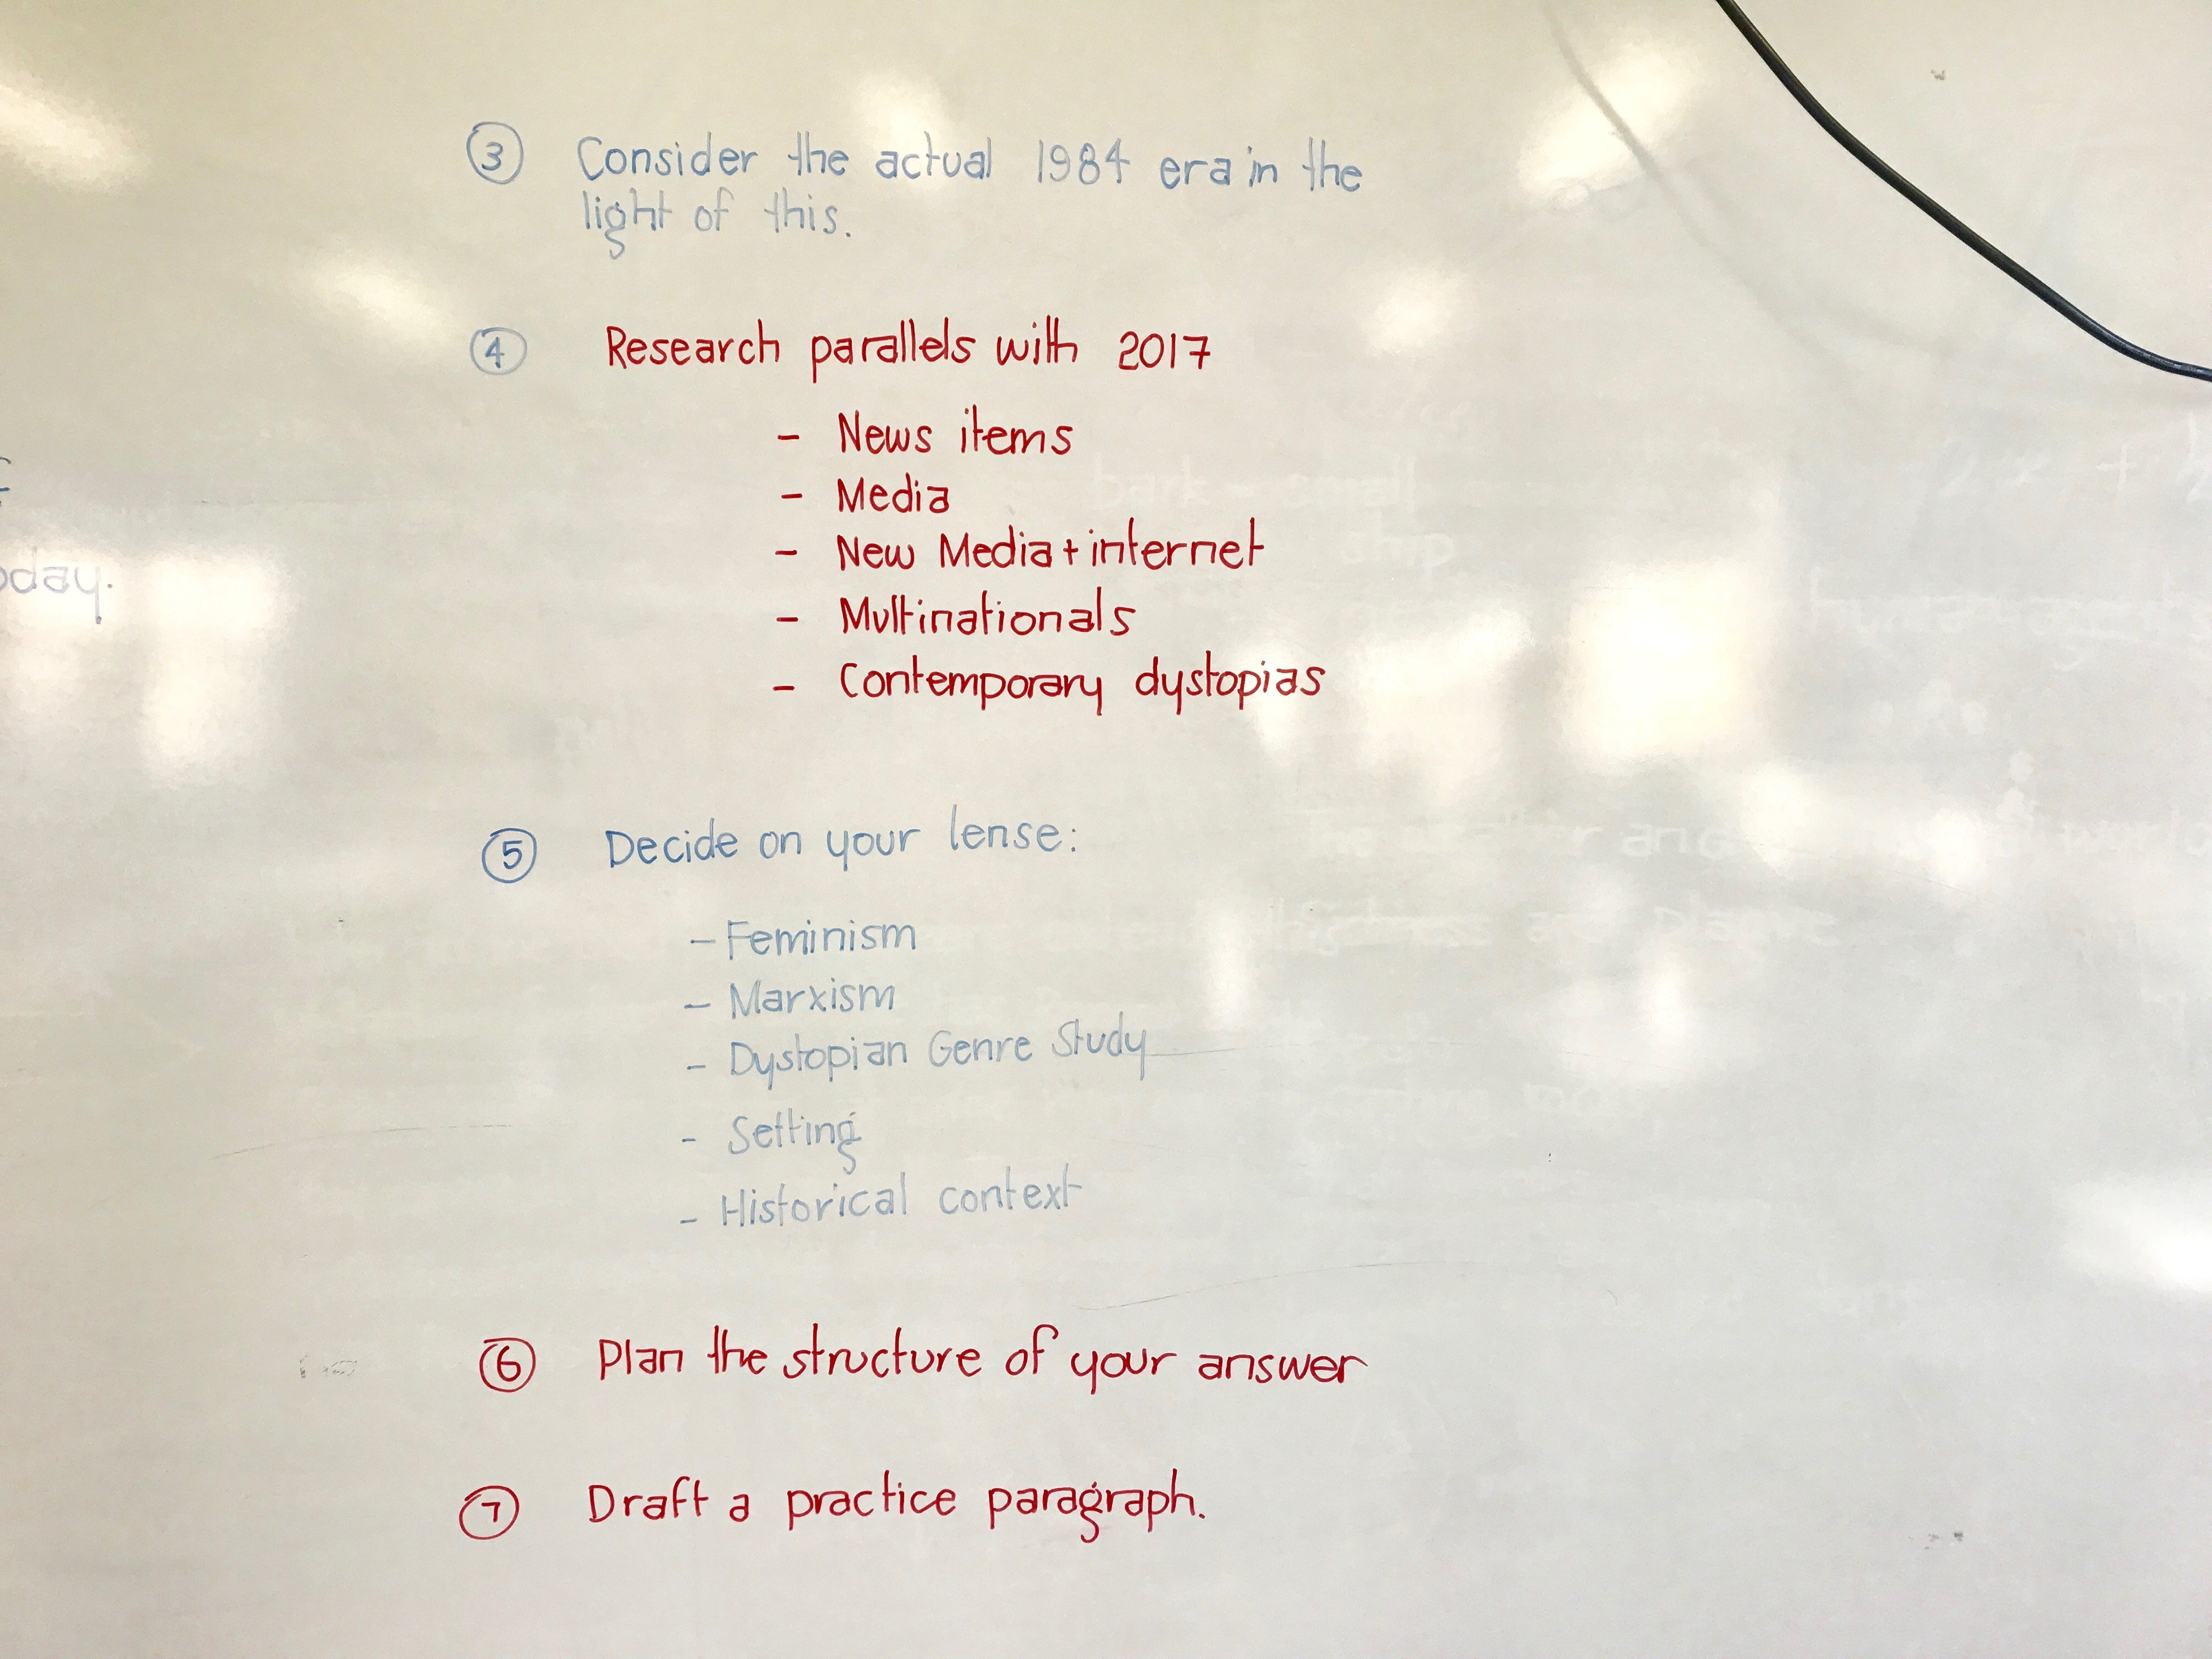 ③ Consider the actual 1984 era in the
light of this.
④ Research parallels with 2017
- News items
- Media
- New Media + internet
- Multinationals
- Contemporary dystopias
⑤ Decide on your lense:
- Feminism
- Marxism
- Dystopian Genre Study
- Setting
- Historical context
⑥ Plan the structure of your answer
⑦ Draft a practice paragraph.